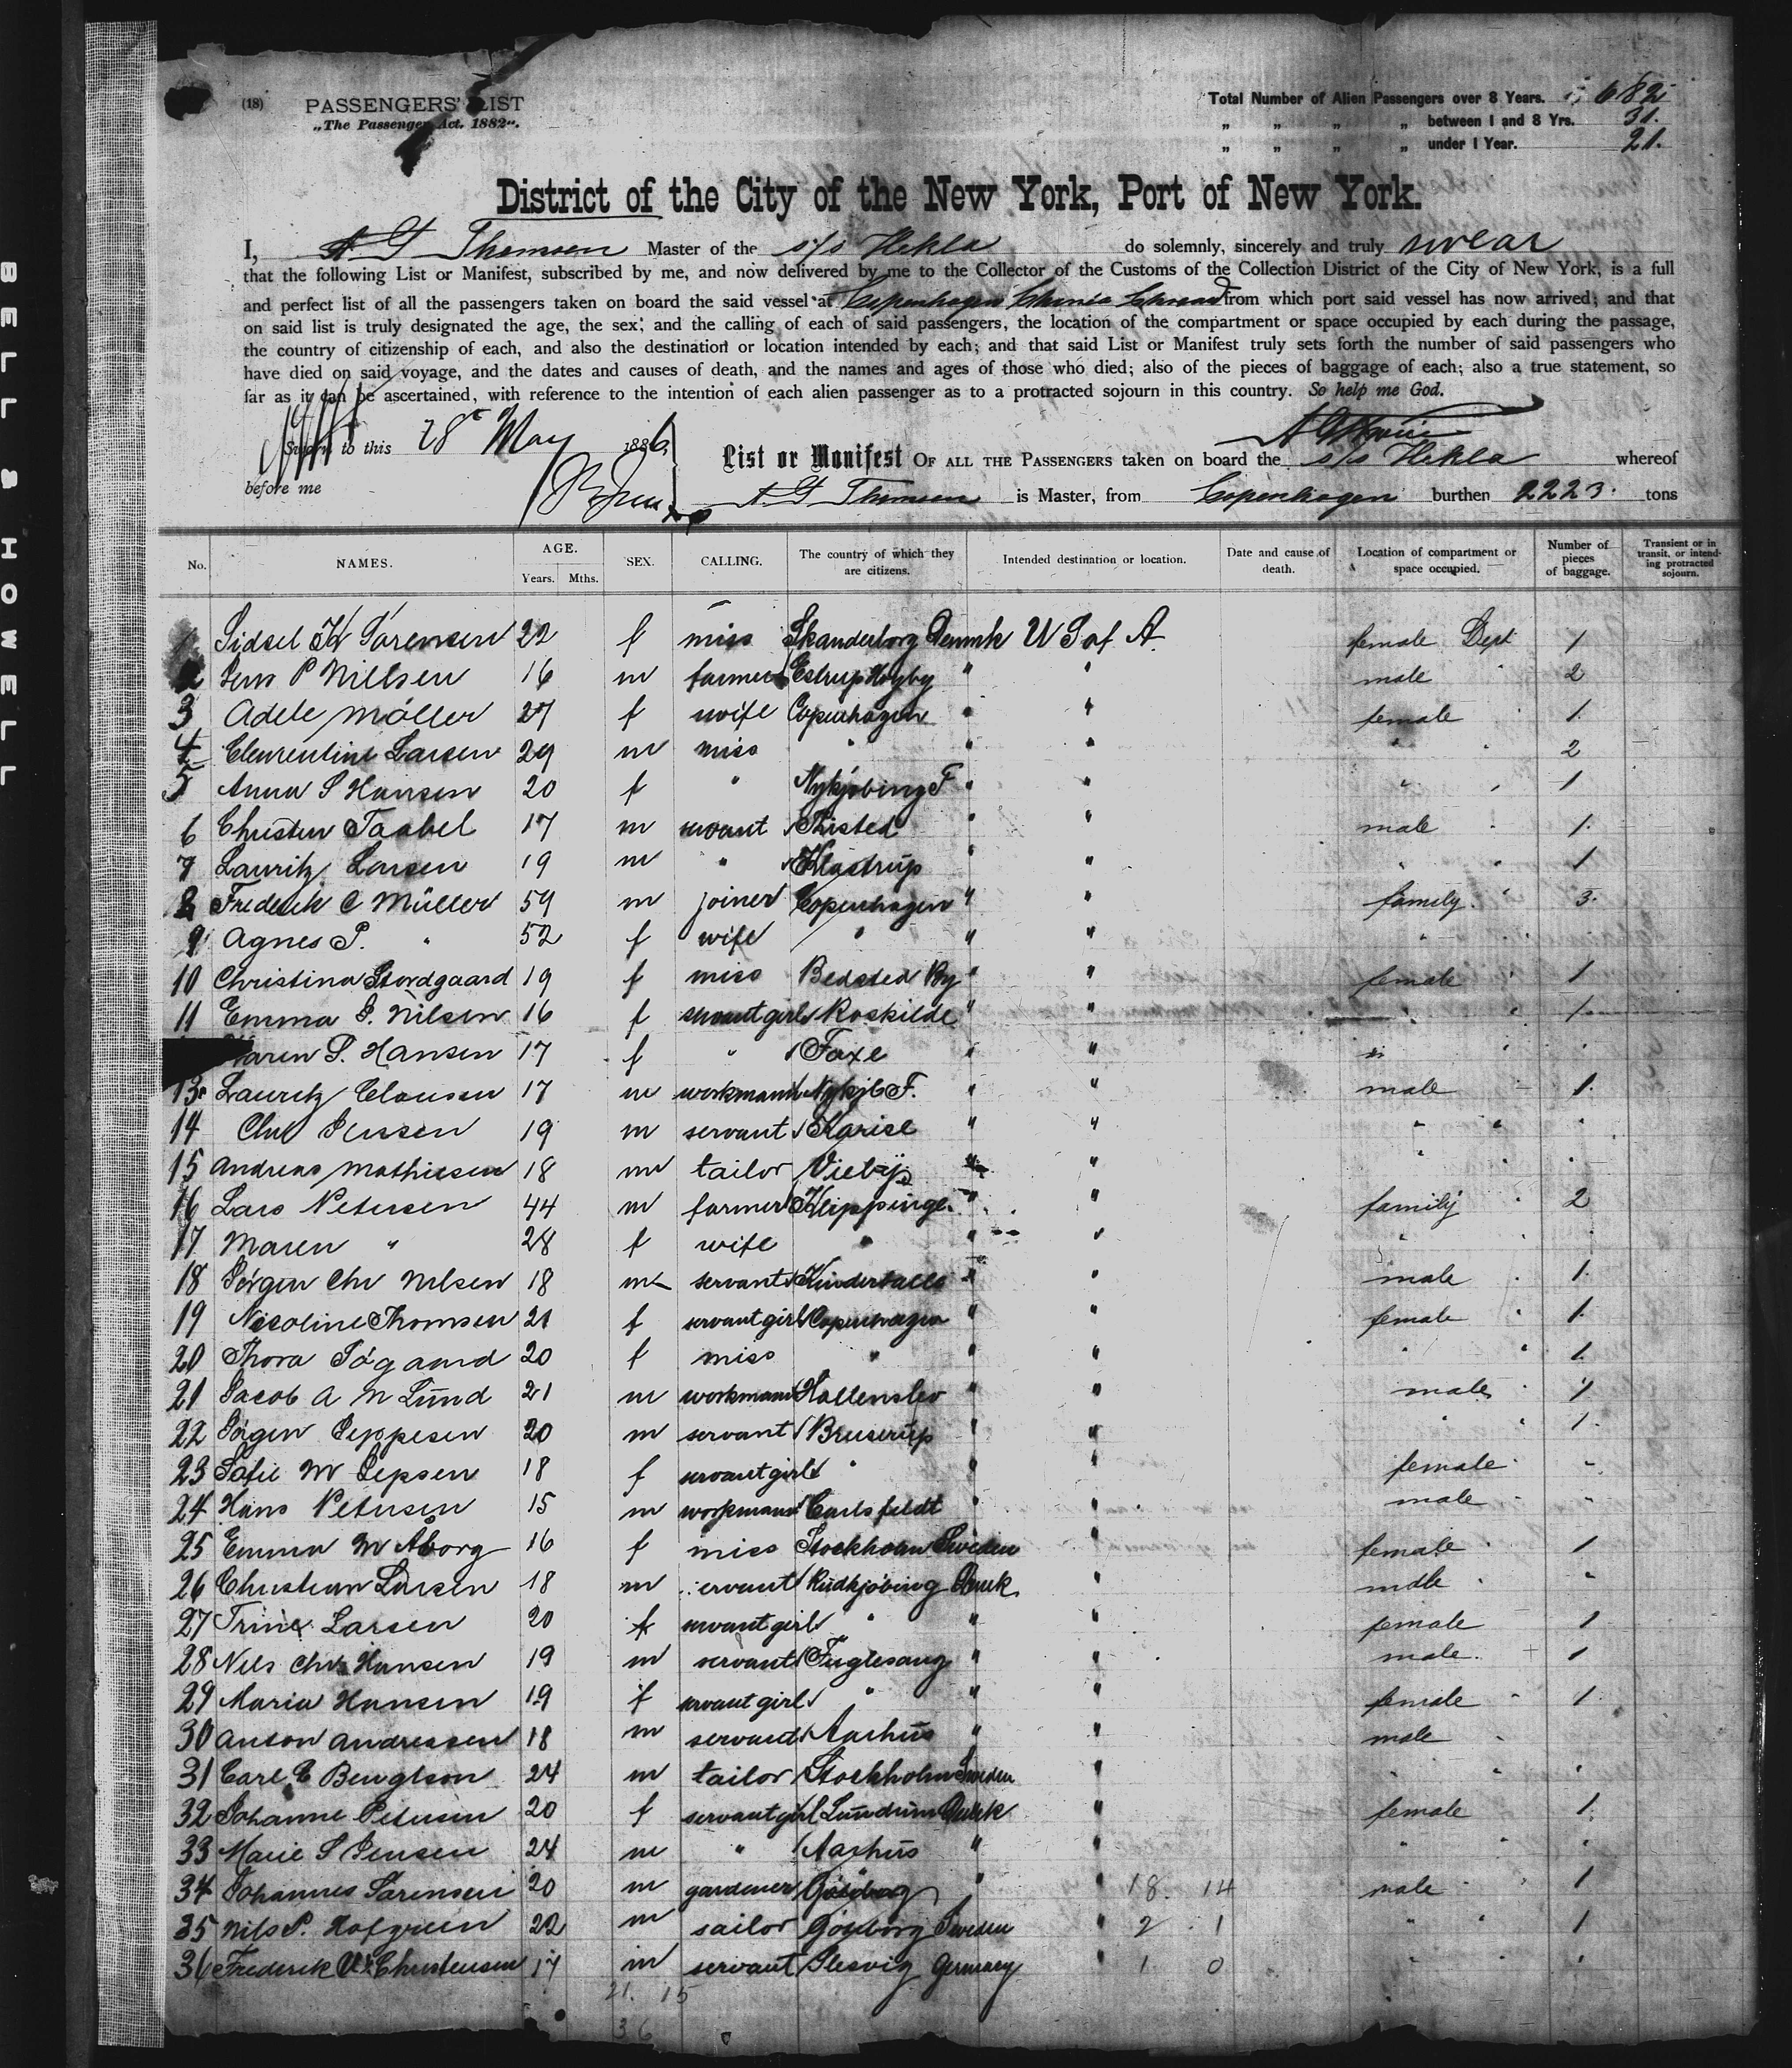 BELL & HOWELL
(18) PASSENGERS' LIST
„The Passenger Act, 1882".
Total Number of Alien Passengers over 8 Years. 682
„ „ „ „ between 1 and 8 Yrs. 31.
„ „ „ „ under 1 Year. 21.
District of the City of the New York, Port of New York.
I, A G Thomsen Master of the s/s Hekla do solemnly, sincerely and truly swear
that the following List or Manifest, subscribed by me, and now delivered by me to the Collector of the Customs of the Collection District of the City of New York, is a full
and perfect list of all the passengers taken on board the said vessel at Copenhagen from which port said vessel has now arrived; and that
on said list is truly designated the age, the sex, and the calling of each of said passengers, the location of the compartment or space occupied by each during the passage,
the country of citizenship of each, and also the destination or location intended by each; and that said List or Manifest truly sets forth the number of said passengers who
have died on said voyage, and the dates and causes of death, and the names and ages of those who died; also of the pieces of baggage of each; also a true statement, so
far as it can be ascertained, with reference to the intention of each alien passenger as to a protracted sojourn in this country. So help me God.
Sworn to this 28 May 1886
before me
List or Manifest OF ALL THE PASSENGERS taken on board the s/s Hekla whereof
A G Thomsen is Master, from Copenhagen burthen 2223. tons
No. NAMES. AGE. Years. Mths. SEX. CALLING. The country of which they are citizens. Intended destination or location. Date and cause of death. Location of compartment or space occupied. Number of pieces of baggage. Transient or in transit, or intending protracted sojourn.
Sidsel Sörensen 22 f miss Skanderborg Denmk U S of A. female Dept 1
2 Jens P Nielsen 16 m farmer Estrup " " male 2
3 Adele Möller 27 f wife Copenhagen " " female 1.
4 Clementine Larsen 29 m miss " " " " " 2
5 Anna S Hansen 20 f " Nykjöbing F " " " " 1
6 Christen Taabel 17 m servant Thisted " " male " 1.
7 Lauritz Larsen 19 m " Klastrup " " " " 1
8 Frederik C Müller 59 m joiner Copenhagen " " family. 3.
9 Agnes P. " 52 f wife " " " " "
10 Christina Stordgaard 19 f miss Bedsted By " " female " 1
11 Emma P. Nilsen 16 f servant girl Roskilde " " " 1
Karen P. Hansen 17 f " Faxe " " " " "
13 Lauritz Clausen 17 m workman Nykjb F. " " male 1.
14 Chr Jenssen 19 m servant Karise " " " " "
15 Andreas Mathiesen 18 m tailor Vieby " " " " "
16 Lars Petersen 44 m farmer Klippinge " " family " 2
17 Maren " 28 f wife " " " " "
18 Jörgen Chr Nilsen 18 m servant " " male " 1.
19 Nicoline Thomsen 21 f servant girl Copenhagen " " female " 1.
20 Thora 20 f miss " " " " " 1.
21 Jacob A N Lund 21 m workman Hallenslev " " male " 1
22 Jörgen Jeppesen 20 m servant Bruserup " " " " 1.
23 Sofie M Jepsen 18 f servant girl " " " female "
24 Hans Petersen 15 m workman Carlsfeldt " " male "
25 Emma M Åborg 16 f miss Stockholm Sweden " female " 1
26 Christian Larsen 18 m servant Rudkjöbing Dmk " male "
27 Trine Larsen 20 f servant girl " " " female 1
28 Nils Chr Hansen 19 m servant Fuglesang " " male. 1
29 Maria Hansen 19 f servant girl " " " female " 1.
30 Anton Andressen 18 m servant Aarhus " " male
31 Carl E Bengtson 24 m tailor Stockholm Sweden " " " "
32 Johanne Petersen 20 f servant girl Dmk " female " 1.
33 Marie S Jensen 24 m " Aarhus " " " " "
34 Johannes Sörensen 20 m gardener " 18. 14 male " 1
35 Nils P. Hofgreen 22 m sailor Göteborg Sweden " 2 1 " " 1
36 Frederik Christensen 17 m servant Slesvig Germany " 1 0 " "
21. 15
36